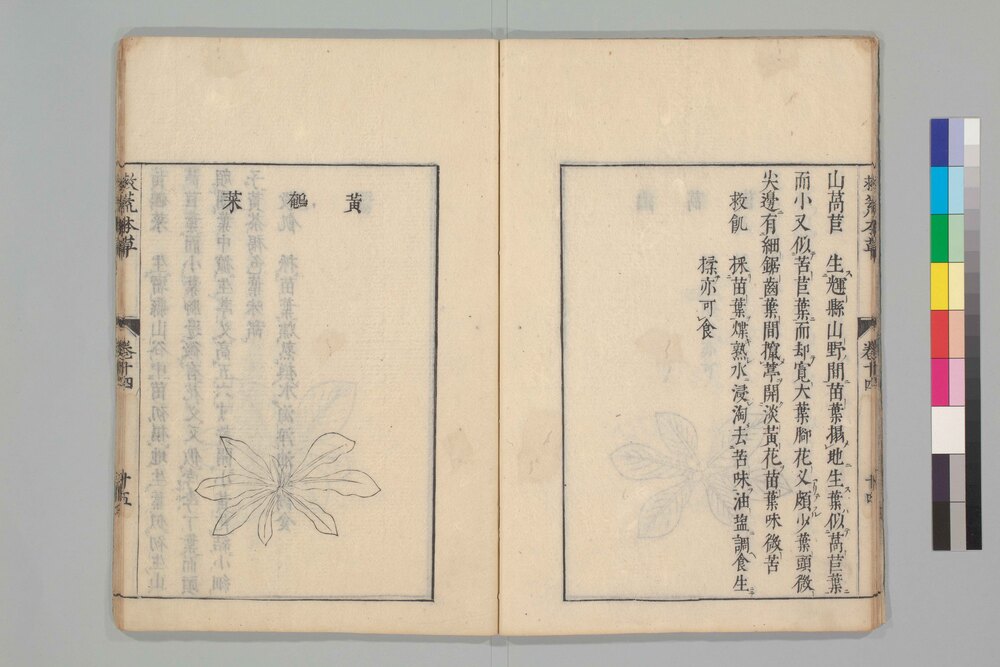 救荒本草
卷十四
十四
山萵苣 生輝縣山野間苗葉搨地生葉似萵苣葉
而小又似苦苣葉而却寬大葉脚花叉頗少葉頭微
尖邊有細鋸齒葉間攛葶開淡黃花苗葉味微苦
救飢 採苗葉煠熟水浸淘去苦味油鹽調食生
揉亦可食
黃鵪菜
救荒本草
卷十四
十五